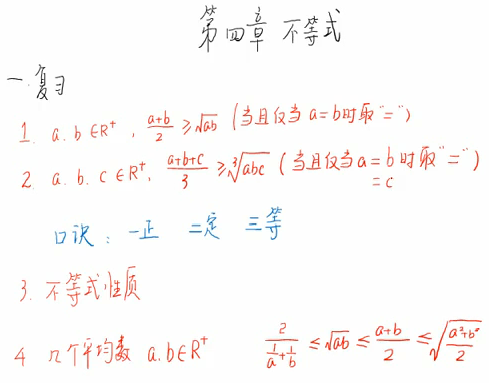 第四章 不等式
一.复习
1. a.b∈R⁺, (a+b)/2 ≥ √ab (当且仅当 a=b时取"=")
2. a.b.c∈R⁺, (a+b+c)/3 ≥ ∛abc (当且仅当a=b=c时取"=")
口诀: 一正 二定 三等
3. 不等式性质
4 几个平均数 a.b∈R⁺ 2/(1/a+1/b) ≤ √ab ≤ (a+b)/2 ≤ √((a²+b²)/2)